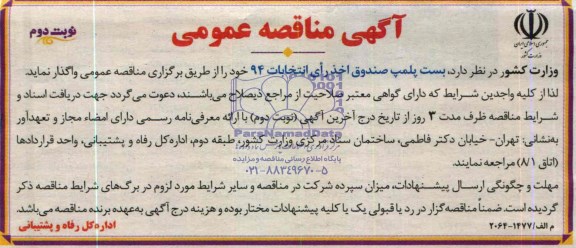 آگهی مناقصه عمومی
نوبت دوم
جمهوری اسلامی ایران
وزارت کشور
وزارت کشور در نظر دارد، بست پلمپ صندوق اخذ رأی انتخابات ۹۴ خود را از طریق برگزاری مناقصه عمومی واگذار نماید.
لذا از کلیه واجدین شرایط که دارای گواهی معتبر صلاحیت از مراجع ذیصلاح می‌باشند، دعوت می‌گردد جهت دریافت اسناد و
شرایط مناقصه ظرف مدت ۳ روز از تاریخ درج آخرین آگهی (نوبت دوم) با ارائه معرفی‌نامه رسمی دارای امضاء مجاز و تعهدآور
به‌نشانی: تهران- خیابان دکتر فاطمی، ساختمان ستاد مرکزی وزارت کشور، طبقه دوم، اداره‌کل رفاه و پشتیبانی، واحد قراردادها
(اتاق ۸/۱) مراجعه نمایند.
مهلت و چگونگی ارسال پیشنهادات، میزان سپرده شرکت در مناقصه و سایر شرایط مورد لزوم در برگ‌های شرایط مناقصه ذکر
گردیده است. ضمناً مناقصه‌گزار در رد یا قبولی یک یا کلیه پیشنهادات مختار بوده و هزینه درج آگهی به‌عهده برنده مناقصه می‌باشد.
م الف/۱۴۷۷-۲۰۶۴
اداره‌کل رفاه و پشتیبانی
ParsNamadData
پایگاه اطلاع رسانی مناقصه و مزایده
۰۲۱-۸۸۳۴۹۶۷۰-۵